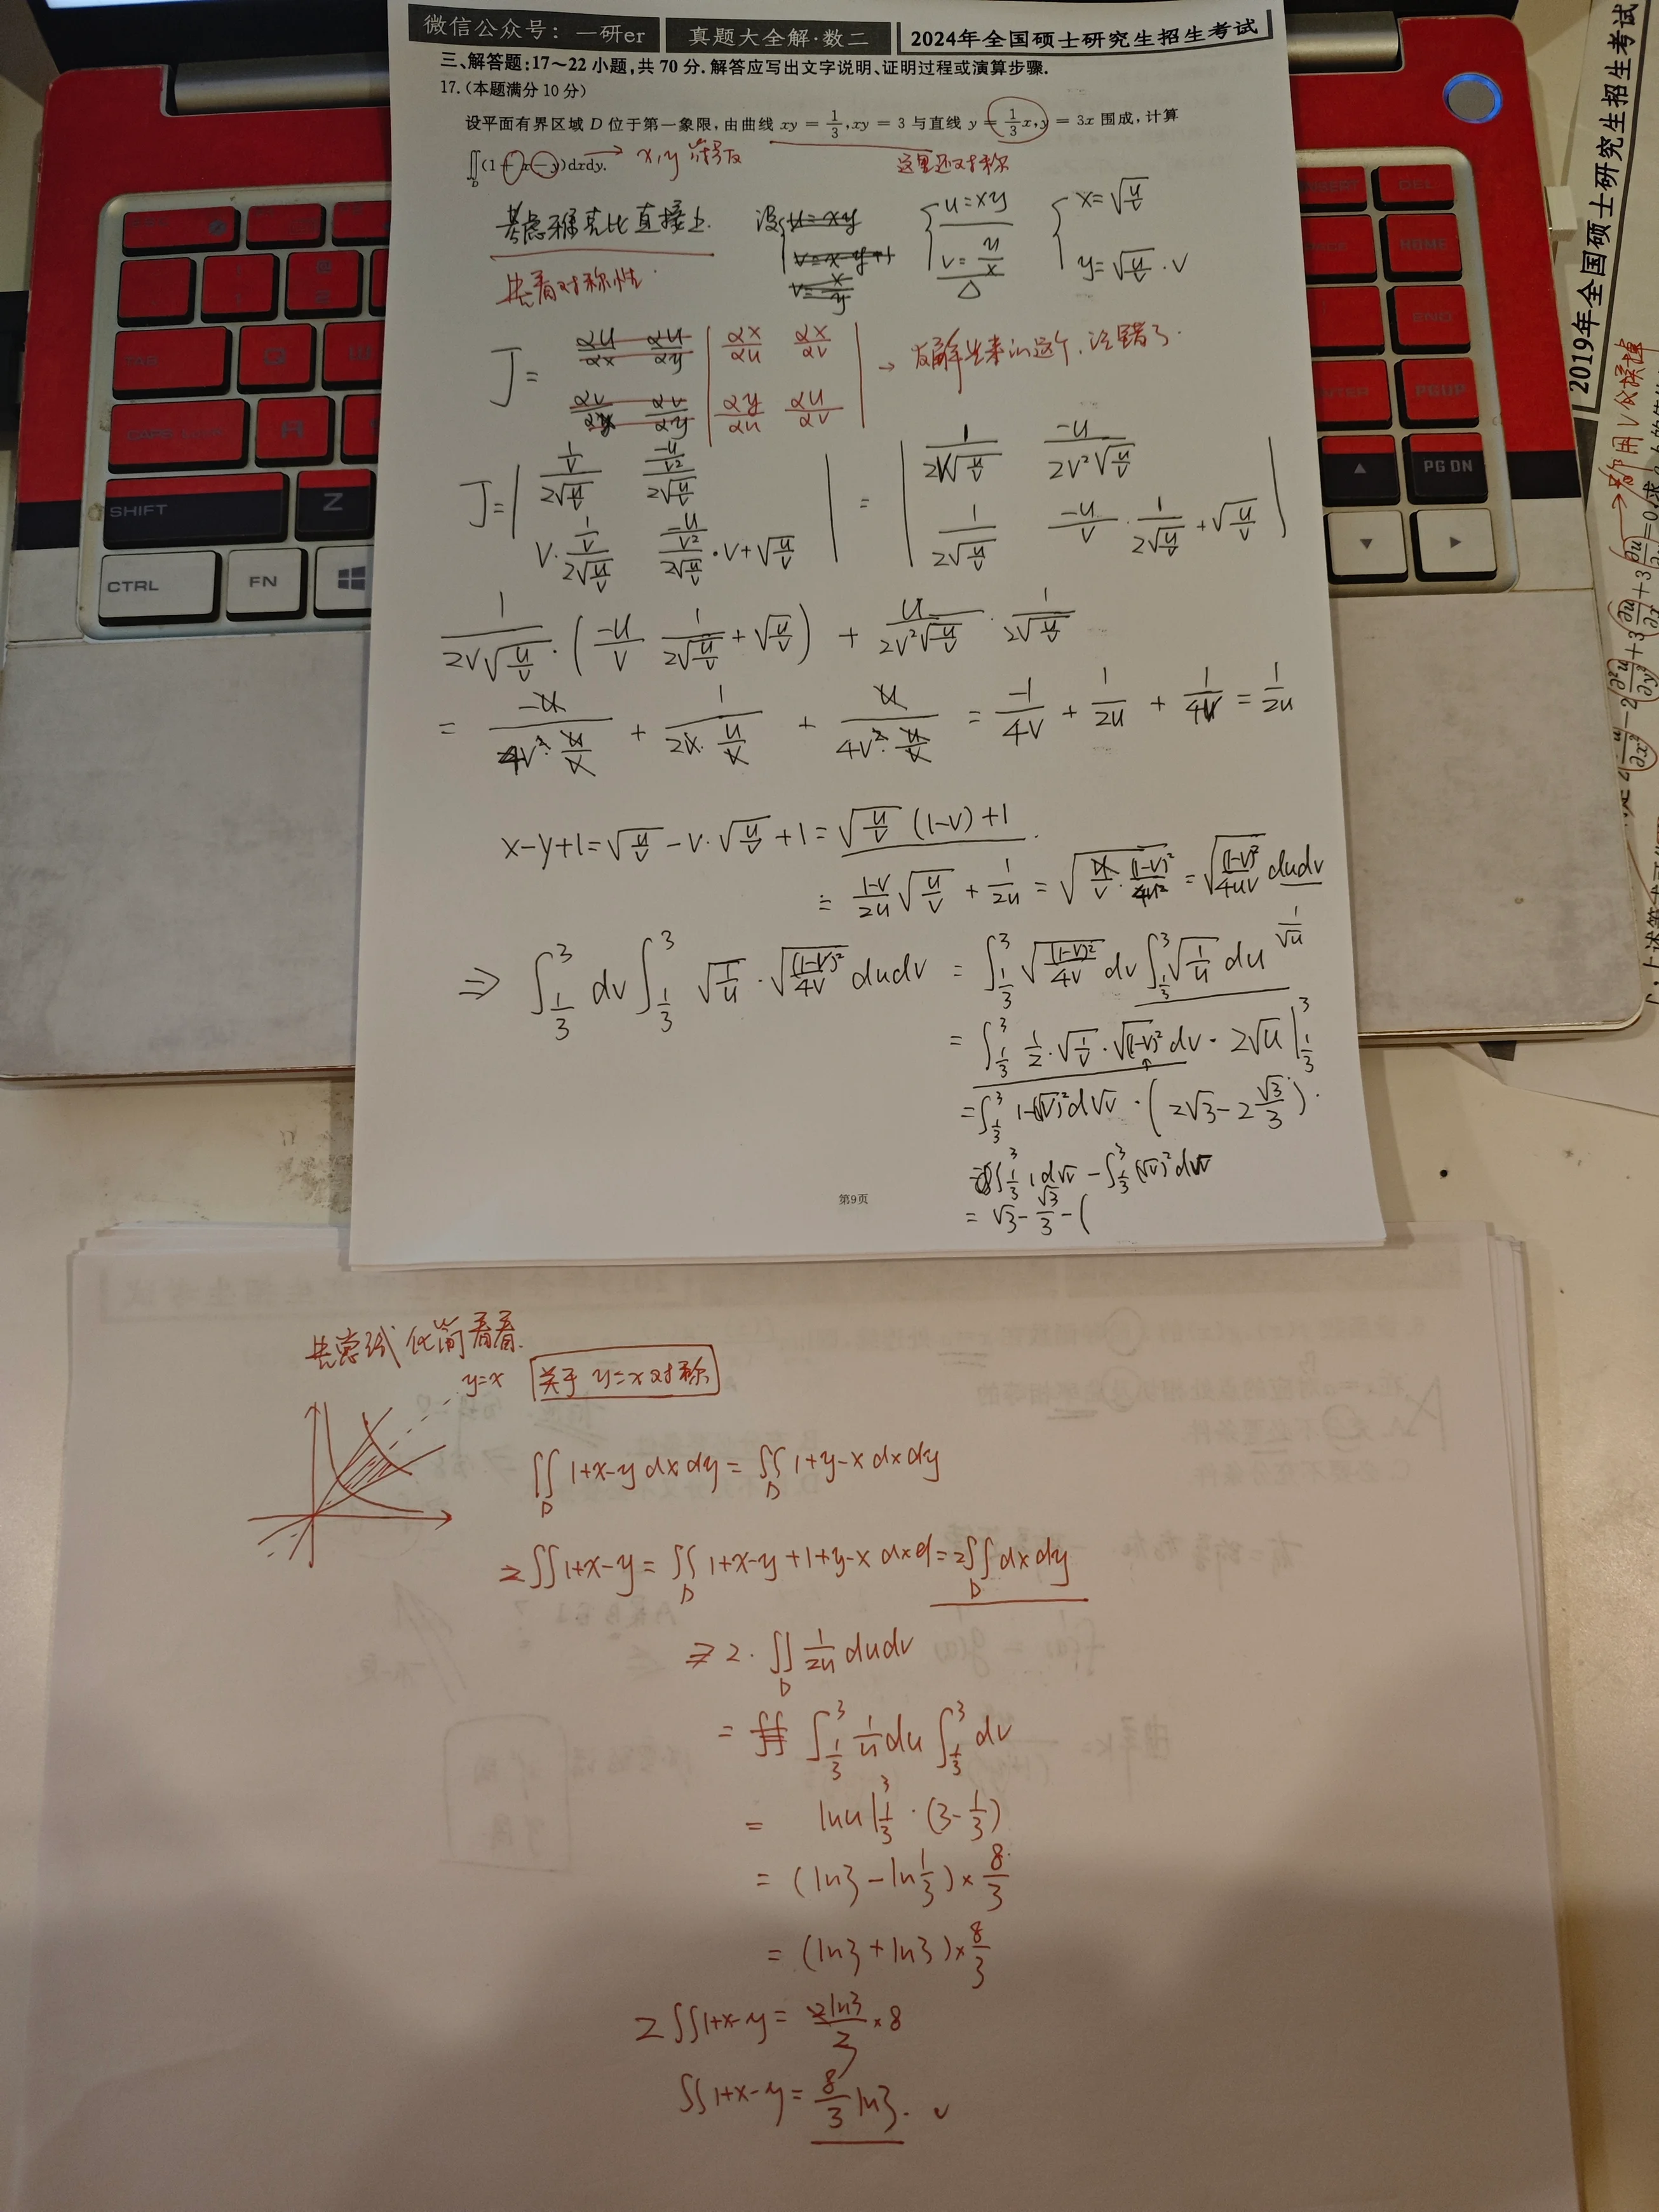 微信公众号：一研er
真题大全解·数二
2024年全国硕士研究生招生考试
三、解答题:17～22小题,共70分.解答应写出文字说明、证明过程或演算步骤.
17.(本题满分10分)
设平面有界区域 D 位于第一象限,由曲线 xy = 1/3, xy = 3 与直线 y = 1/3 x, y = 3x 围成,计算
∬_D (1 + x − y)dxdy. → x,y 符号反
这里还对称
考虑雅克比直接上.
先看对称性.
设 u=xy
v=x-y+1
v=x/y
{ u=xy
v=y/x
{ x=√(u/v)
y=√(u/v)·v
J = | αx/αu αx/αv |
| αy/αu αu/αv |
αu/αx αu/αy
αv/αx αv/αy
J= | (1/v)/(2√(u/v)) (-u/v²)/(2√(u/v)) |
| v·(1/v)/(2√(u/v)) (-u/v²)/(2√(u/v))·v+√(u/v) |
= | 1/(2v√(u/v)) -u/(2v²√(u/v)) |
| 1/(2√(u/v)) -u/v · 1/(2√(u/v)) + √(u/v) |
1/(2v√(u/v)) · (-u/v 1/(2√(u/v)) + √(u/v)) + u/(2v²√(u/v)) · 1/(2√(u/v))
= -u/(4v²·u/v) + 1/(2v·u/v) + u/(4v²·u/v) = -1/4v + 1/2u + 1/4v = 1/2u
x-y+1=√(u/v) - v·√(u/v) + 1 = √(u/v) (1-v)+1
= (1-v)/2u √(u/v) + 1/2u = √(u/v · (1-v)²/4u²) = √((1-v)²/4uv) dudv
⇒ ∫_{1/3}^3 dv ∫_{1/3}^3 √(1/u) · √((1-v)²/4v) dudv = ∫_{1/3}^3 √((1-v)²/4v) dv ∫_{1/3}^3 √(1/u) du 1/√u
= ∫_{1/3}^3 1/2 · √(1/v) · √(1-v)² dv · 2√u |_{1/3}^3
= ∫_{1/3}^3 1-(√v)² d√v · (2√3 - 2 √3/3).
∫_{1/3}^3 1 d√v - ∫_{1/3}^3 (√v)² d√v
= √3 - √3/3 - (
第9页
先尝试化简看看.
y=x
关于 y=x 对称
∬_D 1+x-y dxdy = ∬_D 1+y-x dxdy
2∬1+x-y = ∬_D 1+x-y+1+y-x dxd = 2∬_D dxdy
⇒ 2·∬_D 1/2u dudv
= ∬ ∫_{1/3}^3 1/u du ∫_{1/3}^3 dv
= lnu |_{1/3}^3 · (3-1/3)
= (ln3 - ln1/3) × 8/3
= (ln3 + ln3) × 8/3
2∬1+x-y = 2ln3/3 × 8
∬1+x-y = 8/3 ln3. √
SHIFT
Z
CTRL
FN
HOME
END
PGUP
PG DN
DEL
2019年全国硕士研究生招生考试